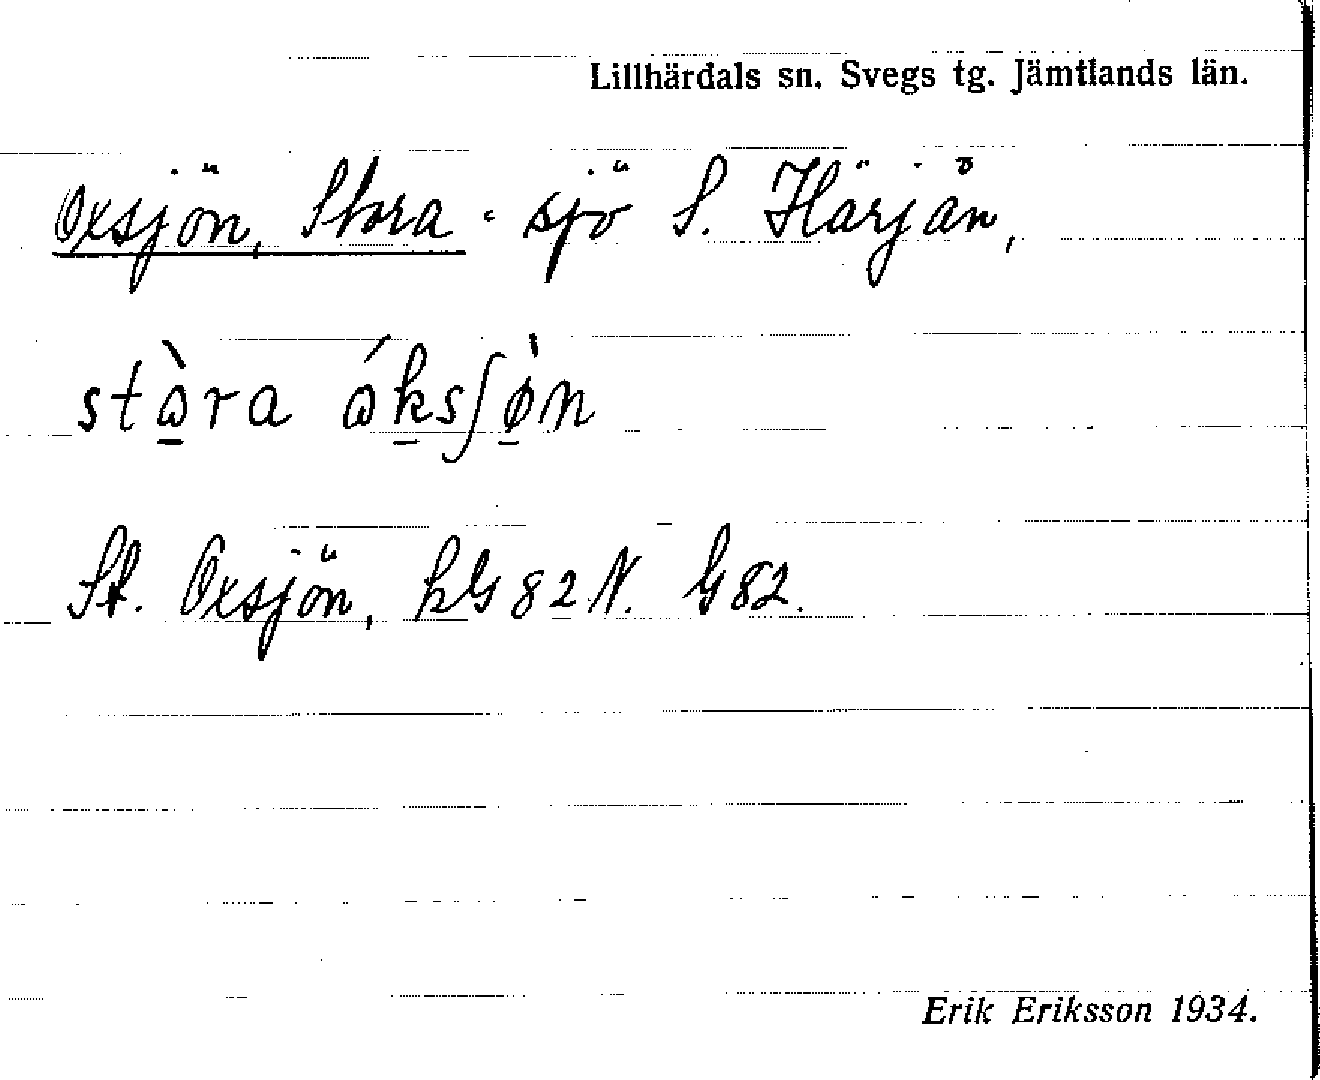 Lillhärdals sn. Svegs tg. Jämtlands län.
Oxsjön, Stora - sjö S. Härjån,
stɷ̠̀ra ɷ́k̠sʃø̠̀n
St. Oxsjön, kG 82 N. G 82.
Erik Eriksson 1934.